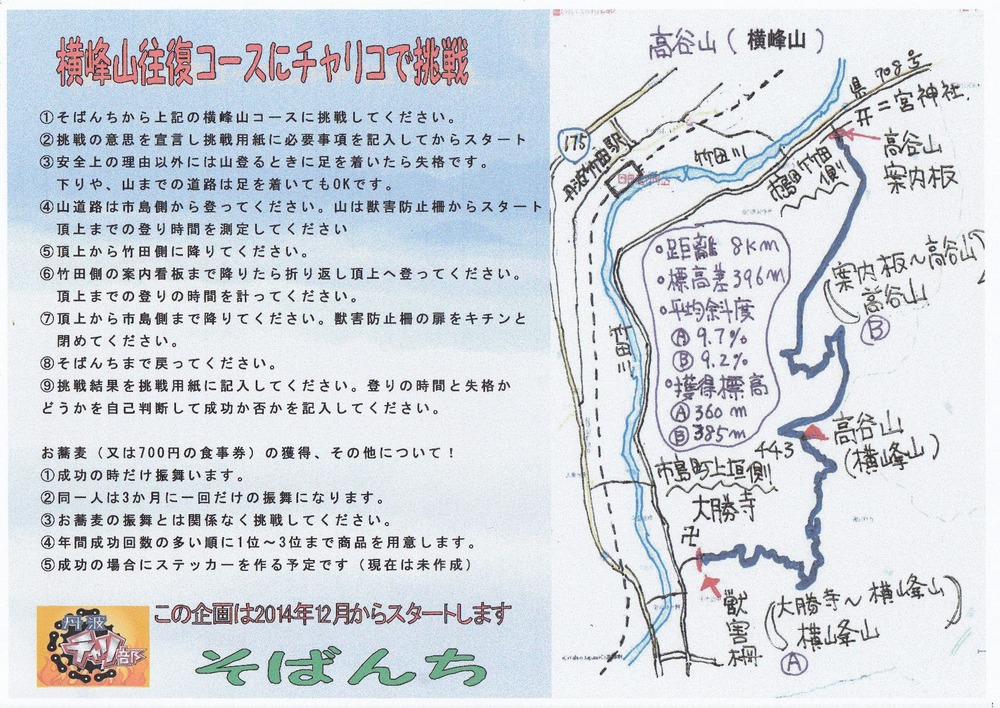 横峰山往復コースにチャリコで挑戦
①そばんちから上記の横峰山コースに挑戦してください。
②挑戦の意思を宣言し挑戦用紙に必要事項を記入してからスタート
③安全上の理由以外には山登るときに足を着いたら失格です。
下りや、山までの道路は足を着いてもOKです。
④山道路は市島側から登ってください。山は獣害防止柵からスタート
頂上までの登り時間を測定してください
⑤頂上から竹田側に降りてください。
⑥竹田側の案内看板まで降りたら折り返し頂上へ登ってください。
頂上までの登りの時間を計ってください。
⑦頂上から市島側まで降りてください。獣害防止柵の扉をキチンと
閉めてください。
⑧そばんちまで戻ってください。
⑨挑戦結果を挑戦用紙に記入してください。登りの時間と失格か
どうかを自己判断して成功か否かを記入してください。
お蕎麦（又は700円の食事券）の獲得、その他について！
①成功の時だけ振舞います。
②同一人は3か月に一回だけの振舞になります。
③お蕎麦の振舞とは関係なく挑戦してください。
④年間成功回数の多い順に1位～3位まで商品を用意します。
⑤成功の場合にステッカーを作る予定です（現在は未作成）
丹波
チャリ部
この企画は2014年12月からスタートします
そばんち
高谷山（横峰山）
県708号
175
丹波竹田駅
竹田川
開二宮神社
高谷山
案内板
市島町竹田側
・距離 8km
・標高差396m
・平均斜度
Ⓐ 9.7%
Ⓑ 9.2%
・獲得標高
Ⓐ 360m
Ⓑ 385m
(案内板～高谷山
高谷山)
Ⓑ
竹田川
443
高谷山
(横峰山)
市島町上垣側
大勝寺
卍
獣
害
柵
(大勝寺～横峰山
横峰山)
Ⓐ